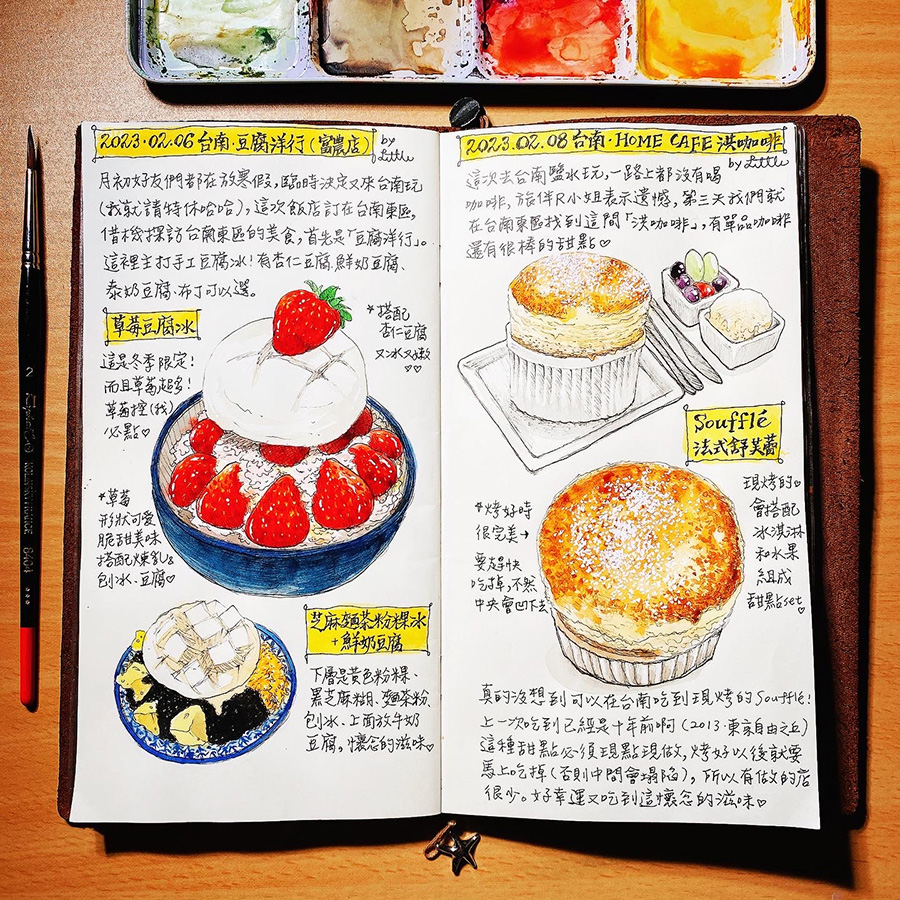 2023.02.06 台南·豆腐洋行(富農店)
by Little
月初好友們都在放寒假,臨時決定又來台南玩
(我就請特休哈哈),這次飯店訂在台南東區,
借機探訪台南東區的美食,首先是「豆腐洋行」。
這裡主打手工豆腐冰!有杏仁豆腐、鮮奶豆腐、
泰奶豆腐、布丁可以選。
草莓豆腐冰
*搭配
杏仁豆腐
又冰又嫩
♡♡
這是冬季限定!
而且草莓超多!
草莓控(我)
必點♡
*草莓
形狀可愛
脆甜美味
搭配煉乳、
刨冰、豆腐♡
芝麻麵茶粉粿冰
+鮮奶豆腐
下層是黃色粉粿、
黑芝麻糊、麵茶粉、
刨冰、上面放牛奶
豆腐。懷念的滋味♡
2023.02.08 台南·HOME CAFE 洪咖啡
by Little
這次去台南鹽水玩,一路上都沒有喝
咖啡,旅伴R小姐表示遺憾,第三天我們就
在台南東區找到這間「洪咖啡」,有單品咖啡
還有很棒的甜點♡
Soufflé
法式舒芙蕾
現烤的♡
會搭配
冰淇淋
和水果
組成
甜點set♡
*烤好時
很完美→
要趕快
吃掉,不然
中央會凹下去
真的沒想到可以在台南吃到現烤的Soufflé!
上一次吃到已經是十年前啊(2013·東京自由之丘)
這種甜點必須現點現做,烤好以後就要
馬上吃掉(否則中間會塌陷),所以有做的店
很少。好幸運又吃到這懷念的滋味♡
2
KOLINSKY
8404